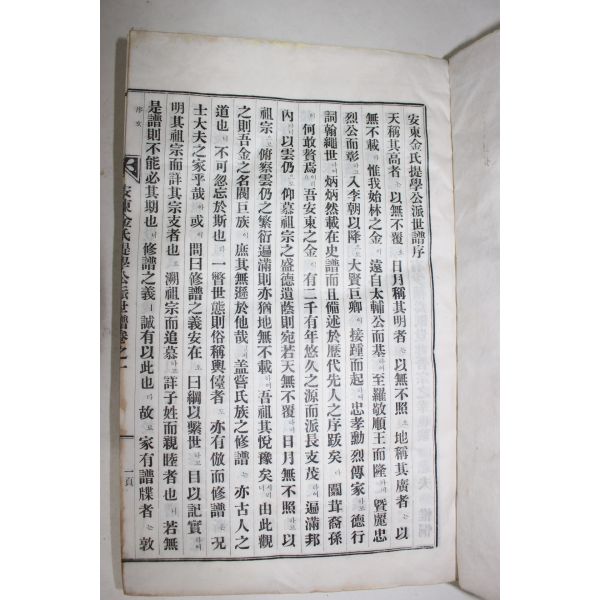 安東金氏提學公派世譜序
天稱其高者는以無不覆오日月稱其明者는以無不照오地稱其廣者는以
無不載惟我始林之金이遠自太輔公而基至羅敬順王而隆曁麗忠
烈公而彰入李朝以降大賢巨卿이接踵而起忠孝勳烈傳家德行
詞翰繩世炳炳然載在史譜而且備述於歷代先人之序跋矣라闒茸裔孫
何敢贅焉吾安東之金이有二千有年悠久之源而派長支茂遍滿邦
內以雲仍으로仰慕祖宗之盛德遺蔭則宛若天無不覆日月無不照以
祖宗으로俯察雲仍之繁衍遍滿則亦猶地無不載吾祖其悅豫矣由此觀
之則吾金之名閥巨族이庶其無遜於他哉蓋嘗氏族之修譜는亦古人之
道也不可忽忘於斯也라一瞥世態則俗稱輿儓者도亦有倣而修譜는況
士大夫之家乎哉아或이問曰修譜之義安在오曰綱以繫世目以記實
明其祖宗而詳其宗支者也溯祖宗而追慕詳子姓而親睦者也若無
是譜則不能必其期也修譜之義誠有以此也라故로家有譜牒者는敦
安東金氏提學公派世譜卷之一
一頁